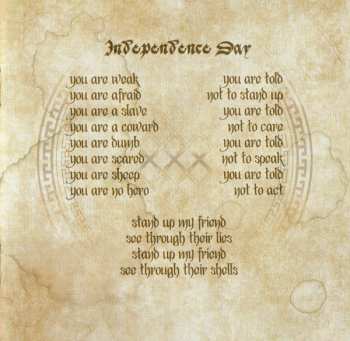 Independence Day
you are weak
you are afraid
you are a slave
you are a coward
you are dumb
you are scared
you are sheep
you are no hero
you are told
not to stand up
you are told
not to care
you are told
not to speak
you are told
not to act
XXX
stand up my friend
see through their lies
stand up my friend
see through their shells